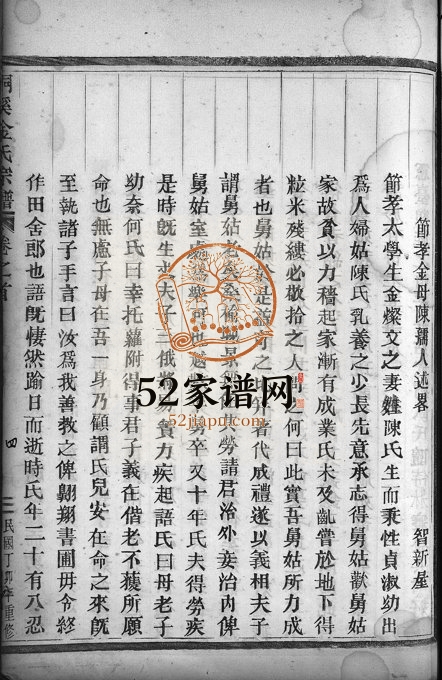 節孝金母陳孺人述畧
智新屋
節孝太學生金燦文之妻雖陳氏生而秉性貞淑幼出
爲人婦姑陳氏乳養之少長先意承志得舅姑歡舅姑
家故貧以力穡起家漸有成業氏未及齓嘗於地下得
粒米殘縷必敬拾之人何曰此實吾舅姑所力成
者也舅姑是益之代成禮遂以義相夫子
謂舅姑老景勞請君治外妾治內俾
舅姑室卒又十年氏夫得勞疾
是時旣生夫子三俄力疾起語氏曰母老子
幼奈何氏曰幸托蘿附得事君子義在偕老不獲所願
命也無慮子母在吾一身乃顧謂氏兒安在命之來旣
至執諸子手言曰汝爲我善教之俾翺翔書圃毋令終
作田舍郎也語旣悽然踰日而逝時氏年二十有八忍
桐溪金氏宗譜 卷之首 四 民國丁卯年重修
52家谱网
52jiapu.com